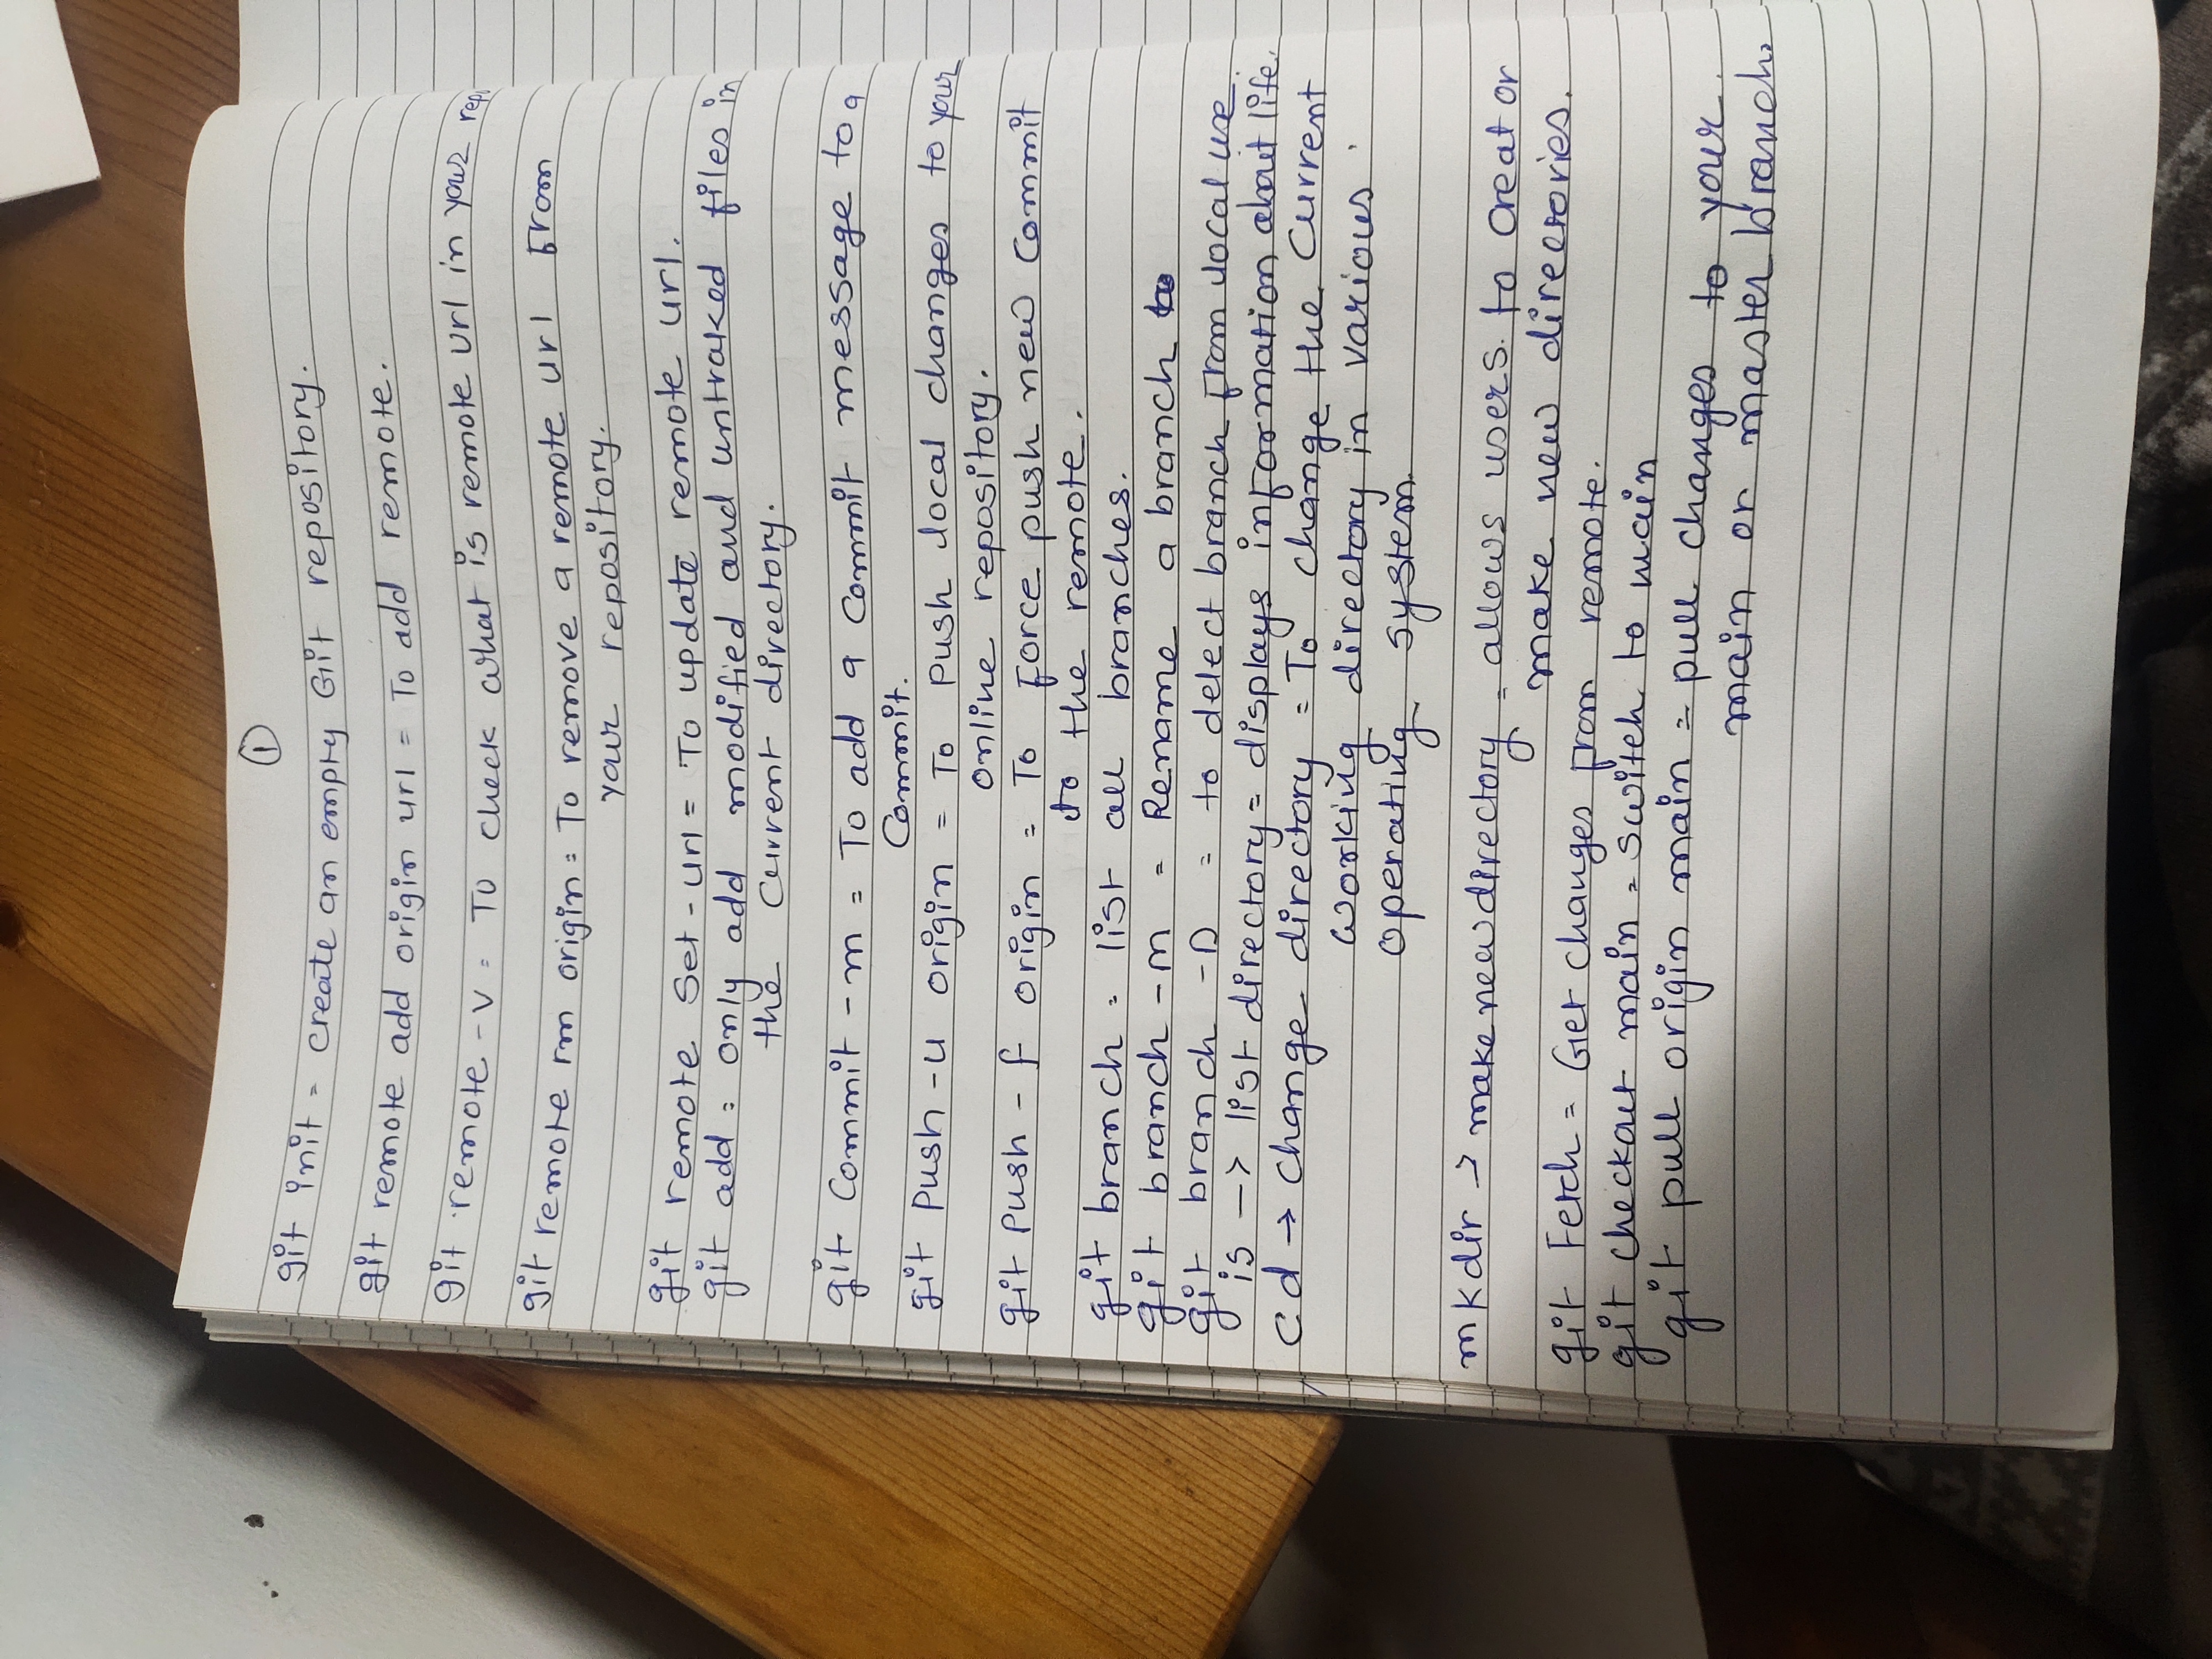 1
git init = create an empty Git repository.
git remote add origin url = To add remote.
git remote -v = To check what is remote url in your repo
git remote rm origin = To remove a remote url From
your repository.
git remote Set-url = To update remote url.
git add = only add modified and untraked files in
the current directory.
git Commit -m = To add a Commit message to a
Commit.
git Push -u origin = To push local changes to your
online repository.
git Push -f origin = To Force push new Commit
to the remote.
git branch = list all branches.
git branch -m = Rename a branch
git branch -D = to delect branch From local use.
is -> list directory = displays information about life.
Cd → Change directory = To change the Current
working directory in various
operating system.
mkdir → make new directory = allows users to creat or
make new directories.
git Fetch = Get changes from remote.
git checkout main = switch to main
git pull origin main = pull changes to your
main or master branch.